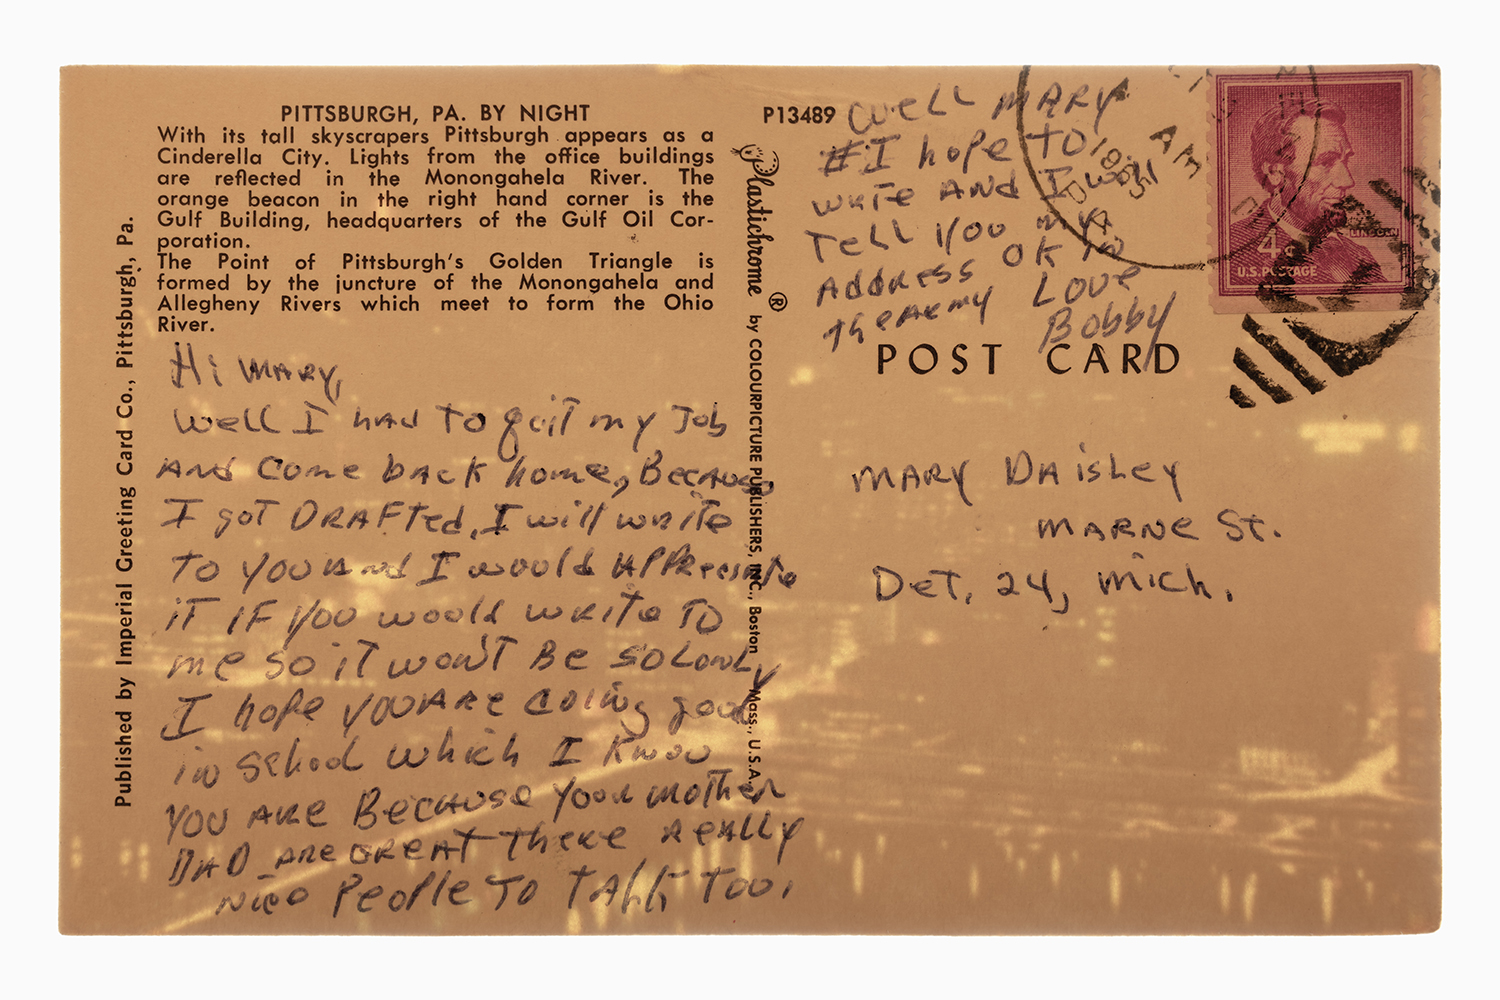 PITTSBURGH, PA. BY NIGHT
With its tall skyscrapers Pittsburgh appears as a
Cinderella City. Lights from the office buildings
are reflected in the Monongahela River. The
orange beacon in the right hand corner is the
Gulf Building, headquarters of the Gulf Oil Cor-
poration.
The Point of Pittsburgh's Golden Triangle is
formed by the juncture of the Monongahela and
Allegheny Rivers which meet to form the Ohio
River.
Hi MARY,
Well I had to quit my Job
And Come back home, Because
I got DRAFted, I will write
to you and I would Appreciate
it IF you would write TO
me so it won't Be so Lonly
I hope you ARe doing good
in School which I know
YOU ARE BECAUSE your mother
DAD ARE GREAT There REALLY
Nice People To TALK Too.
Published by Imperial Greeting Card Co., Pittsburgh, Pa.
P13489
Plastichrome ® by COLOURPICTURE PUBLISHERS, INC., Boston Mass., U.S.A.
Well MARY
I hope to
write And I will
Tell you my
Address OK in
the ARmy Love
Bobby
POST CARD
MARY DAisley
MARNE St.
Det. 24, Mich.
AM
196
4¢
LINCOLN
U.S. POSTAGE